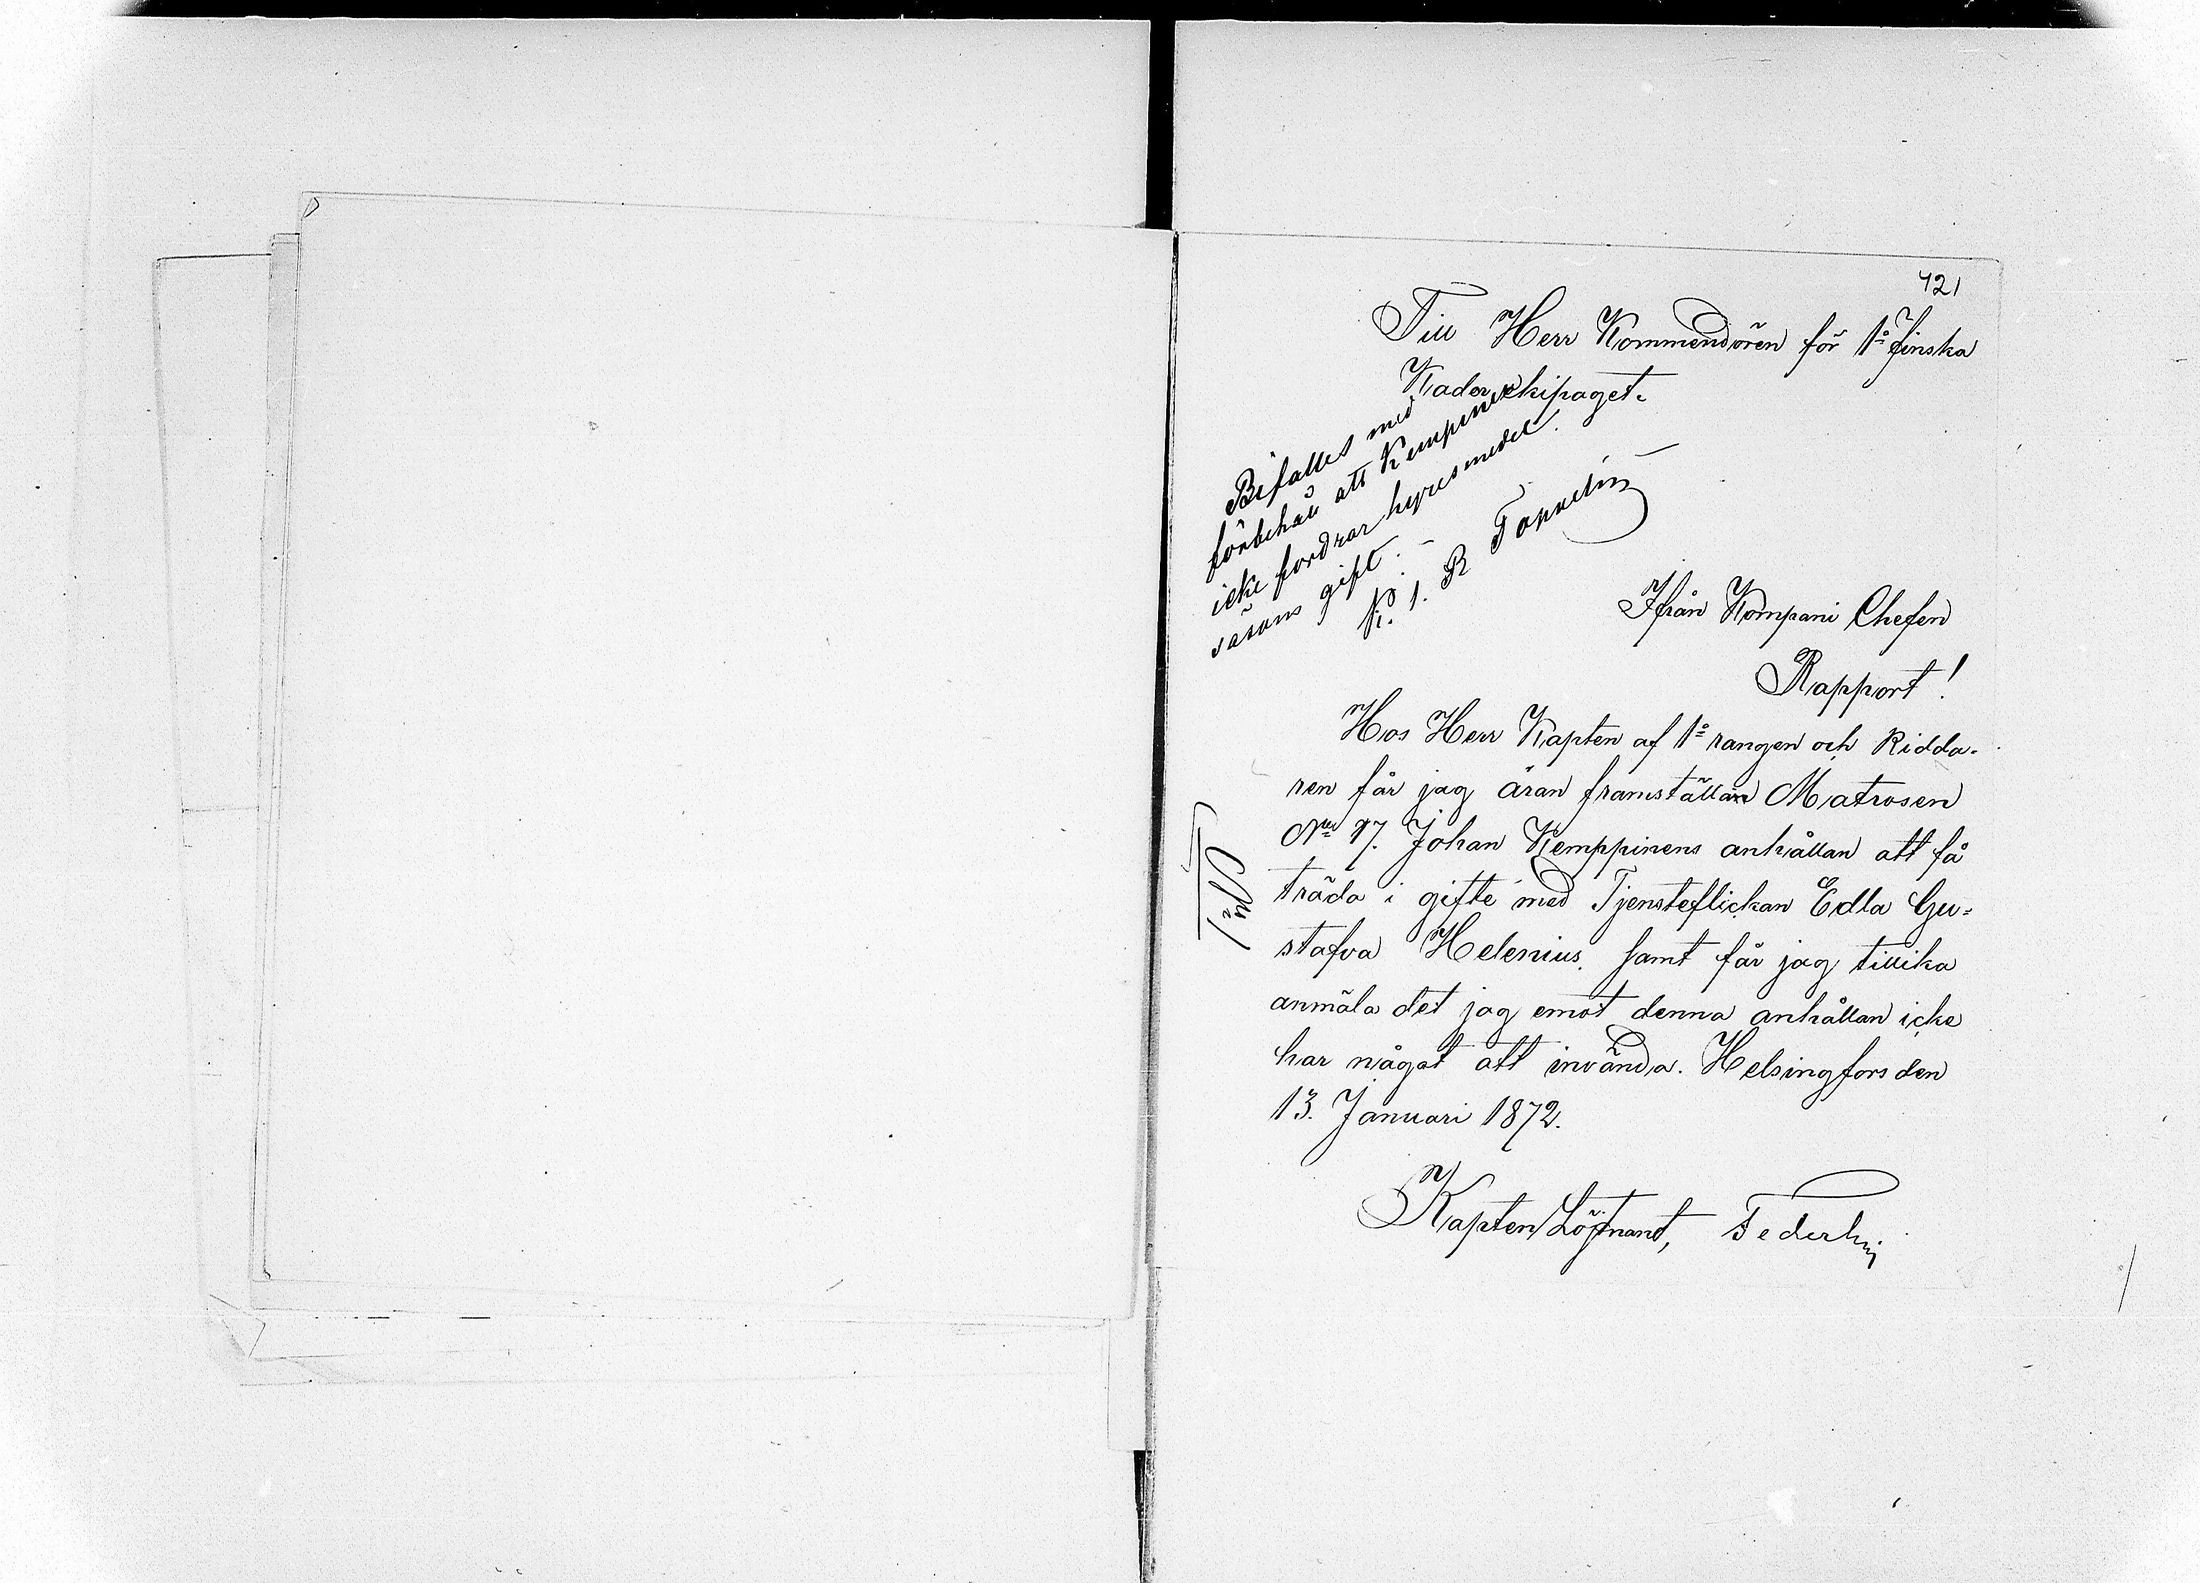 421
Till Herr Kommendören för 1:a Finska
Kader ekipaget.
Bifalles med
förbehåll att Kempinen
icke fordrar hyresmedel
såsom gift. –
K. 1. R
Ifrån Kompani Chefen
Rapport!
Hos Herr Kapten af 1:a rangen och Ridda-
ren får jag äran framställan Matrosen
No 17. Johan Kemppinens anhållan att få
träda i gifte med Tjensteflickan Edla Gu=
stafva Helenius. Samt får jag tillika
anmäla det jag emot denna anhållan icke
har något att invända. Helsingfors den
13. Januari 1872.
Kapten Löjtnant,